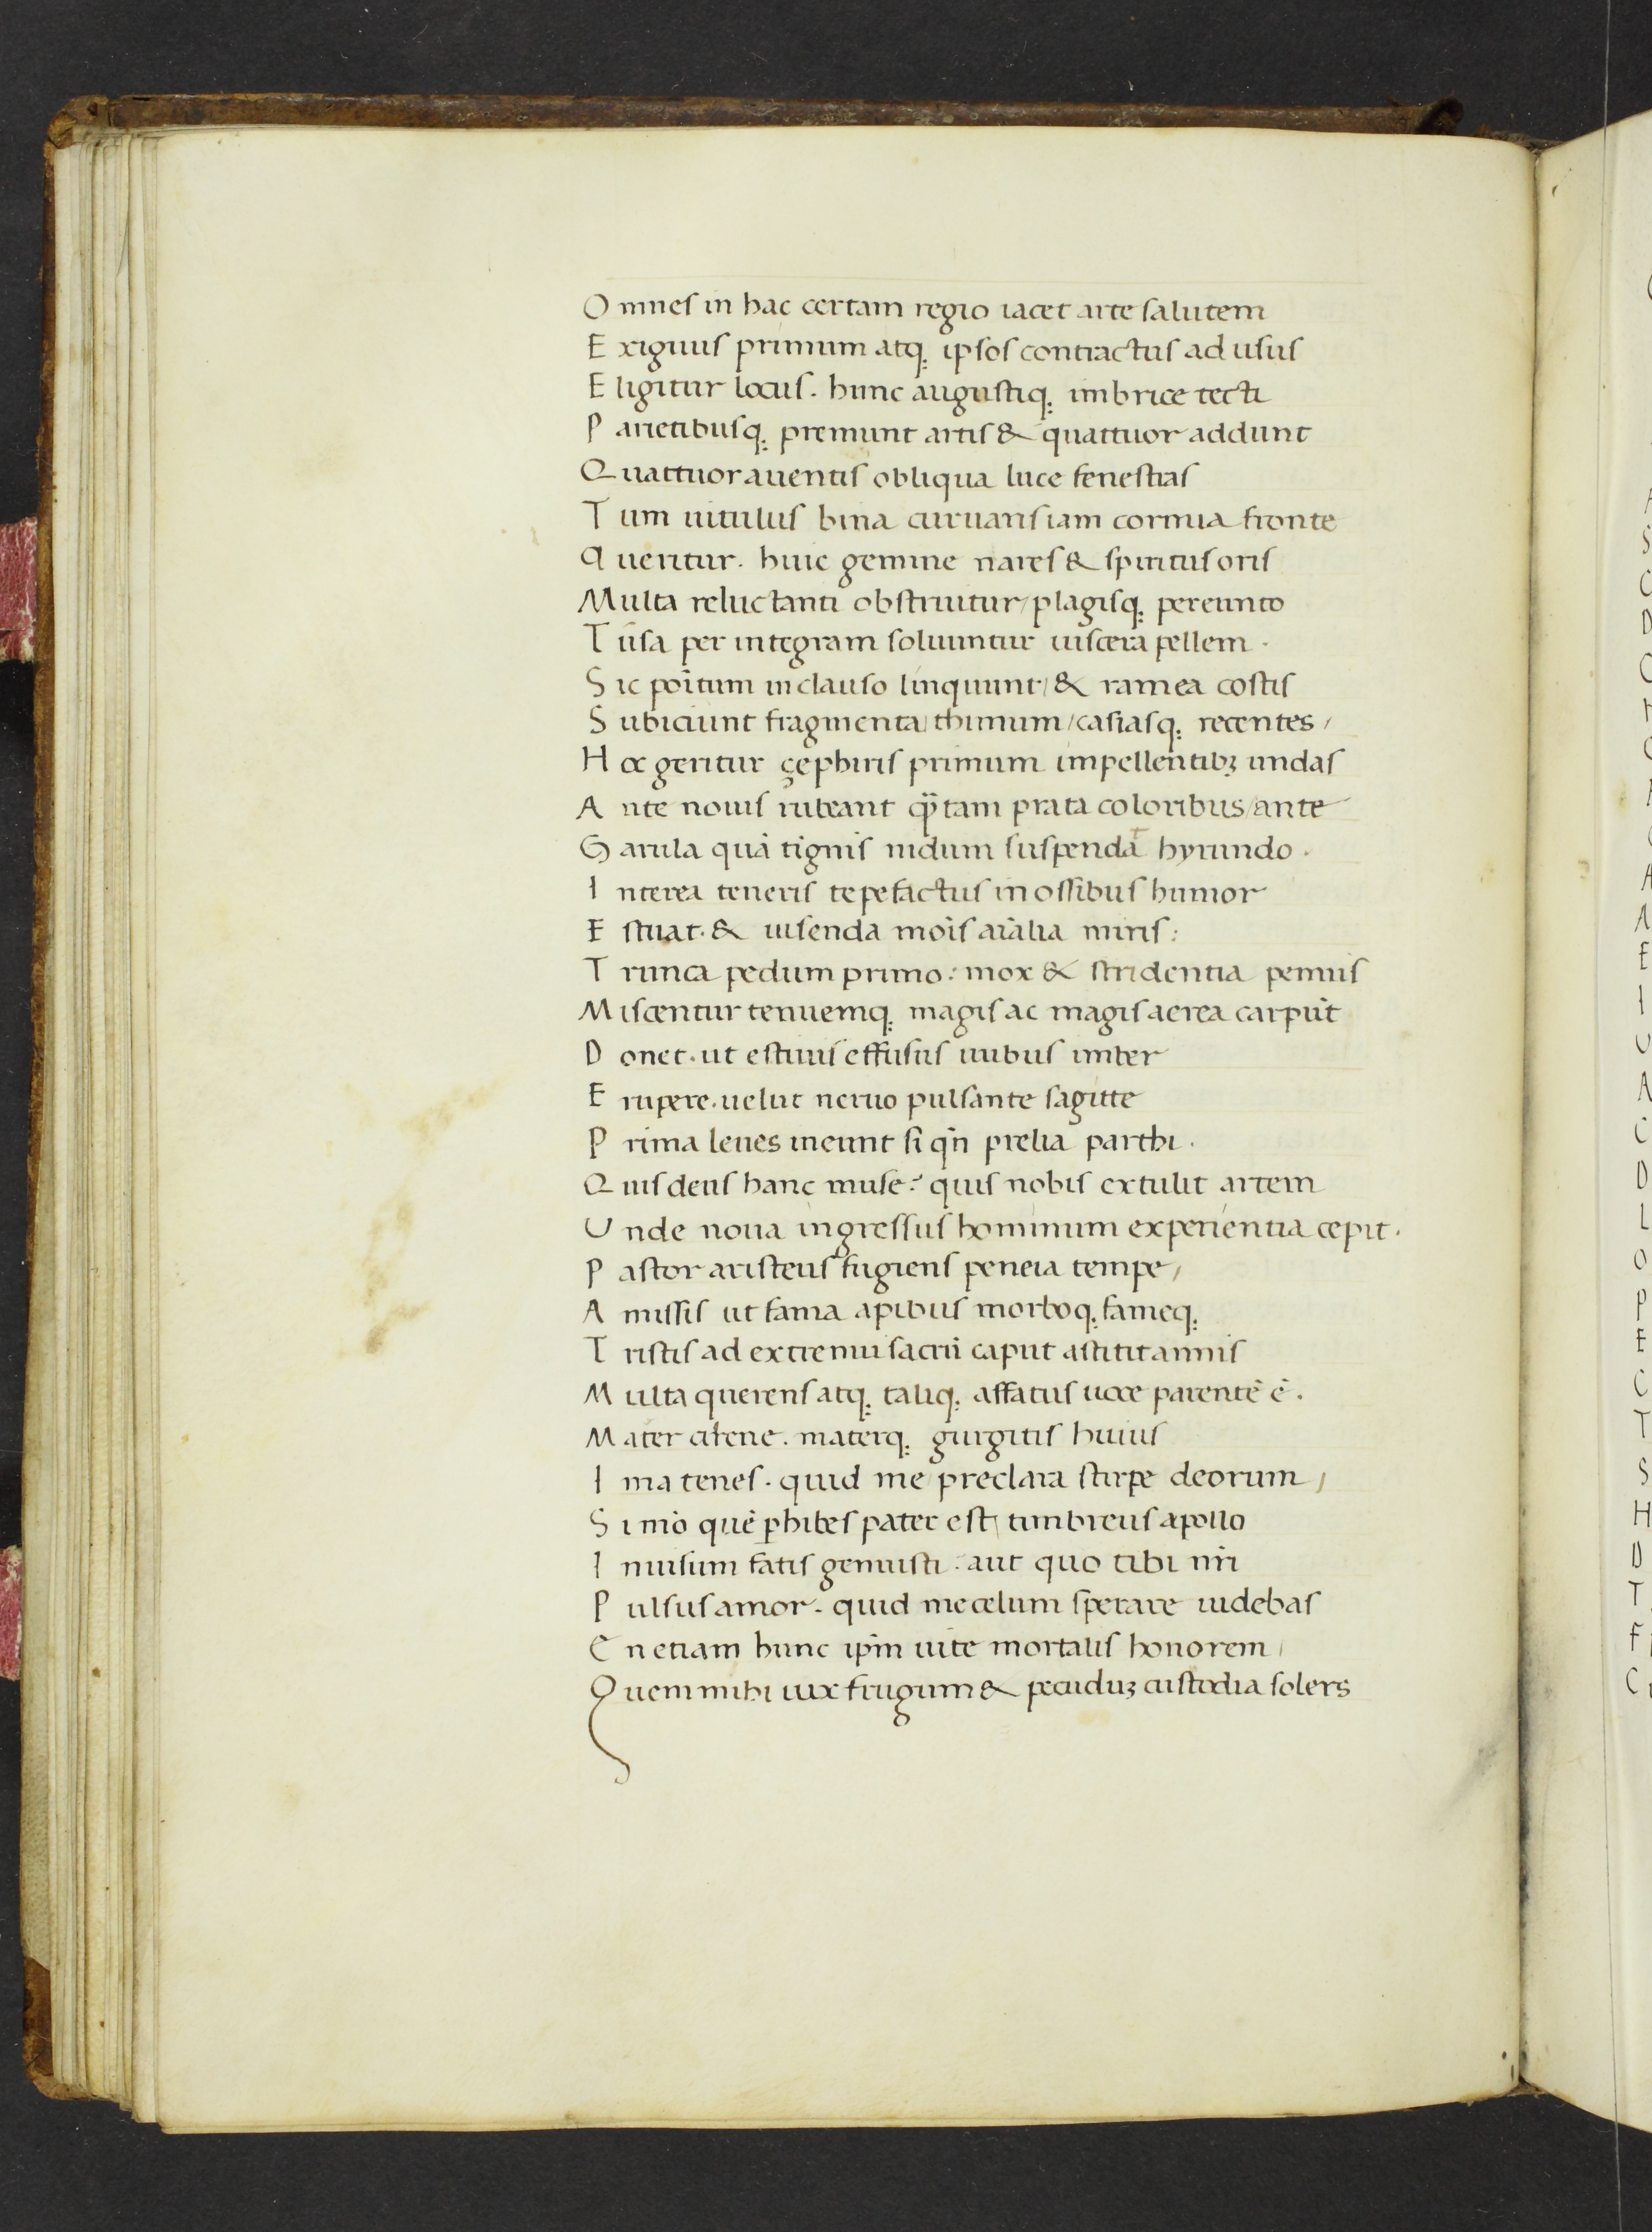 Omnes in hac certam regio iacet arte salutem
Exiguus primum atq; ipsos contractus ad usus
Eligitur locus. hunc augustiq; imbrice tecti
Parietibusq; premunt artis & quattuor addunt
Quattuor auentis obliqua luce fenestras
Tum uitulus bina curuans iam cornua fronte
Queritur. huic gemine nares & spiritus oris
Multa reluctanti obstruitur / plagisq; perempto
Tūsa per integram soluuntur uiscera pellem.
Sic poītum in clauso linquunt / & ramea costis
Subiciunt fragmenta / thimum / casiasq; recentes /
Hoc geritur çephiris primum impellentibꝫ undas
Ante nouis rubeant q̈tam prata coloribus / ante
Garula quā tignis nidum suspendat hyrundo.
Interea teneris tepefactus in ossibus humor
Estuat. & uisenda mōis aīalia miris:
Trunca pedum primo: mox & stridentia pennis
Miscentur tenuemq; magis ac magis aerea carpūt
Donec. ut estiuis effusus nubus imber
Erupere. uelut neruo pulsante sagitte
Prima leues ineunt si qn̄ prelia parthi.
Quis deus hanc muse? quis nobis extulit artem
Unde noua ingressus hominum experientia cepit.
Pastor aristeus fugiens peneia tempe /
Amissis ut fama apibus morboq; fameq;
Tristis ad extremū sacrū caput astitit amnis
Multa querens atq; taliq; affatus uoce parentē ē.
Mater cirene. materq; gurgitis huius
Ima tenes. quid me preclara stirpe deorum /
Si mō quē ꝑhibes pater est / timbreus apollo
Inuisum fatis genuisti. aut quo tibi nr̄i
Pulsus amor. quid me celum sperare iudebas
En etiam hunc ip̄m uite mortalis honorem /
Quem mihi uix frugum & pecuduꝫ custodia solers